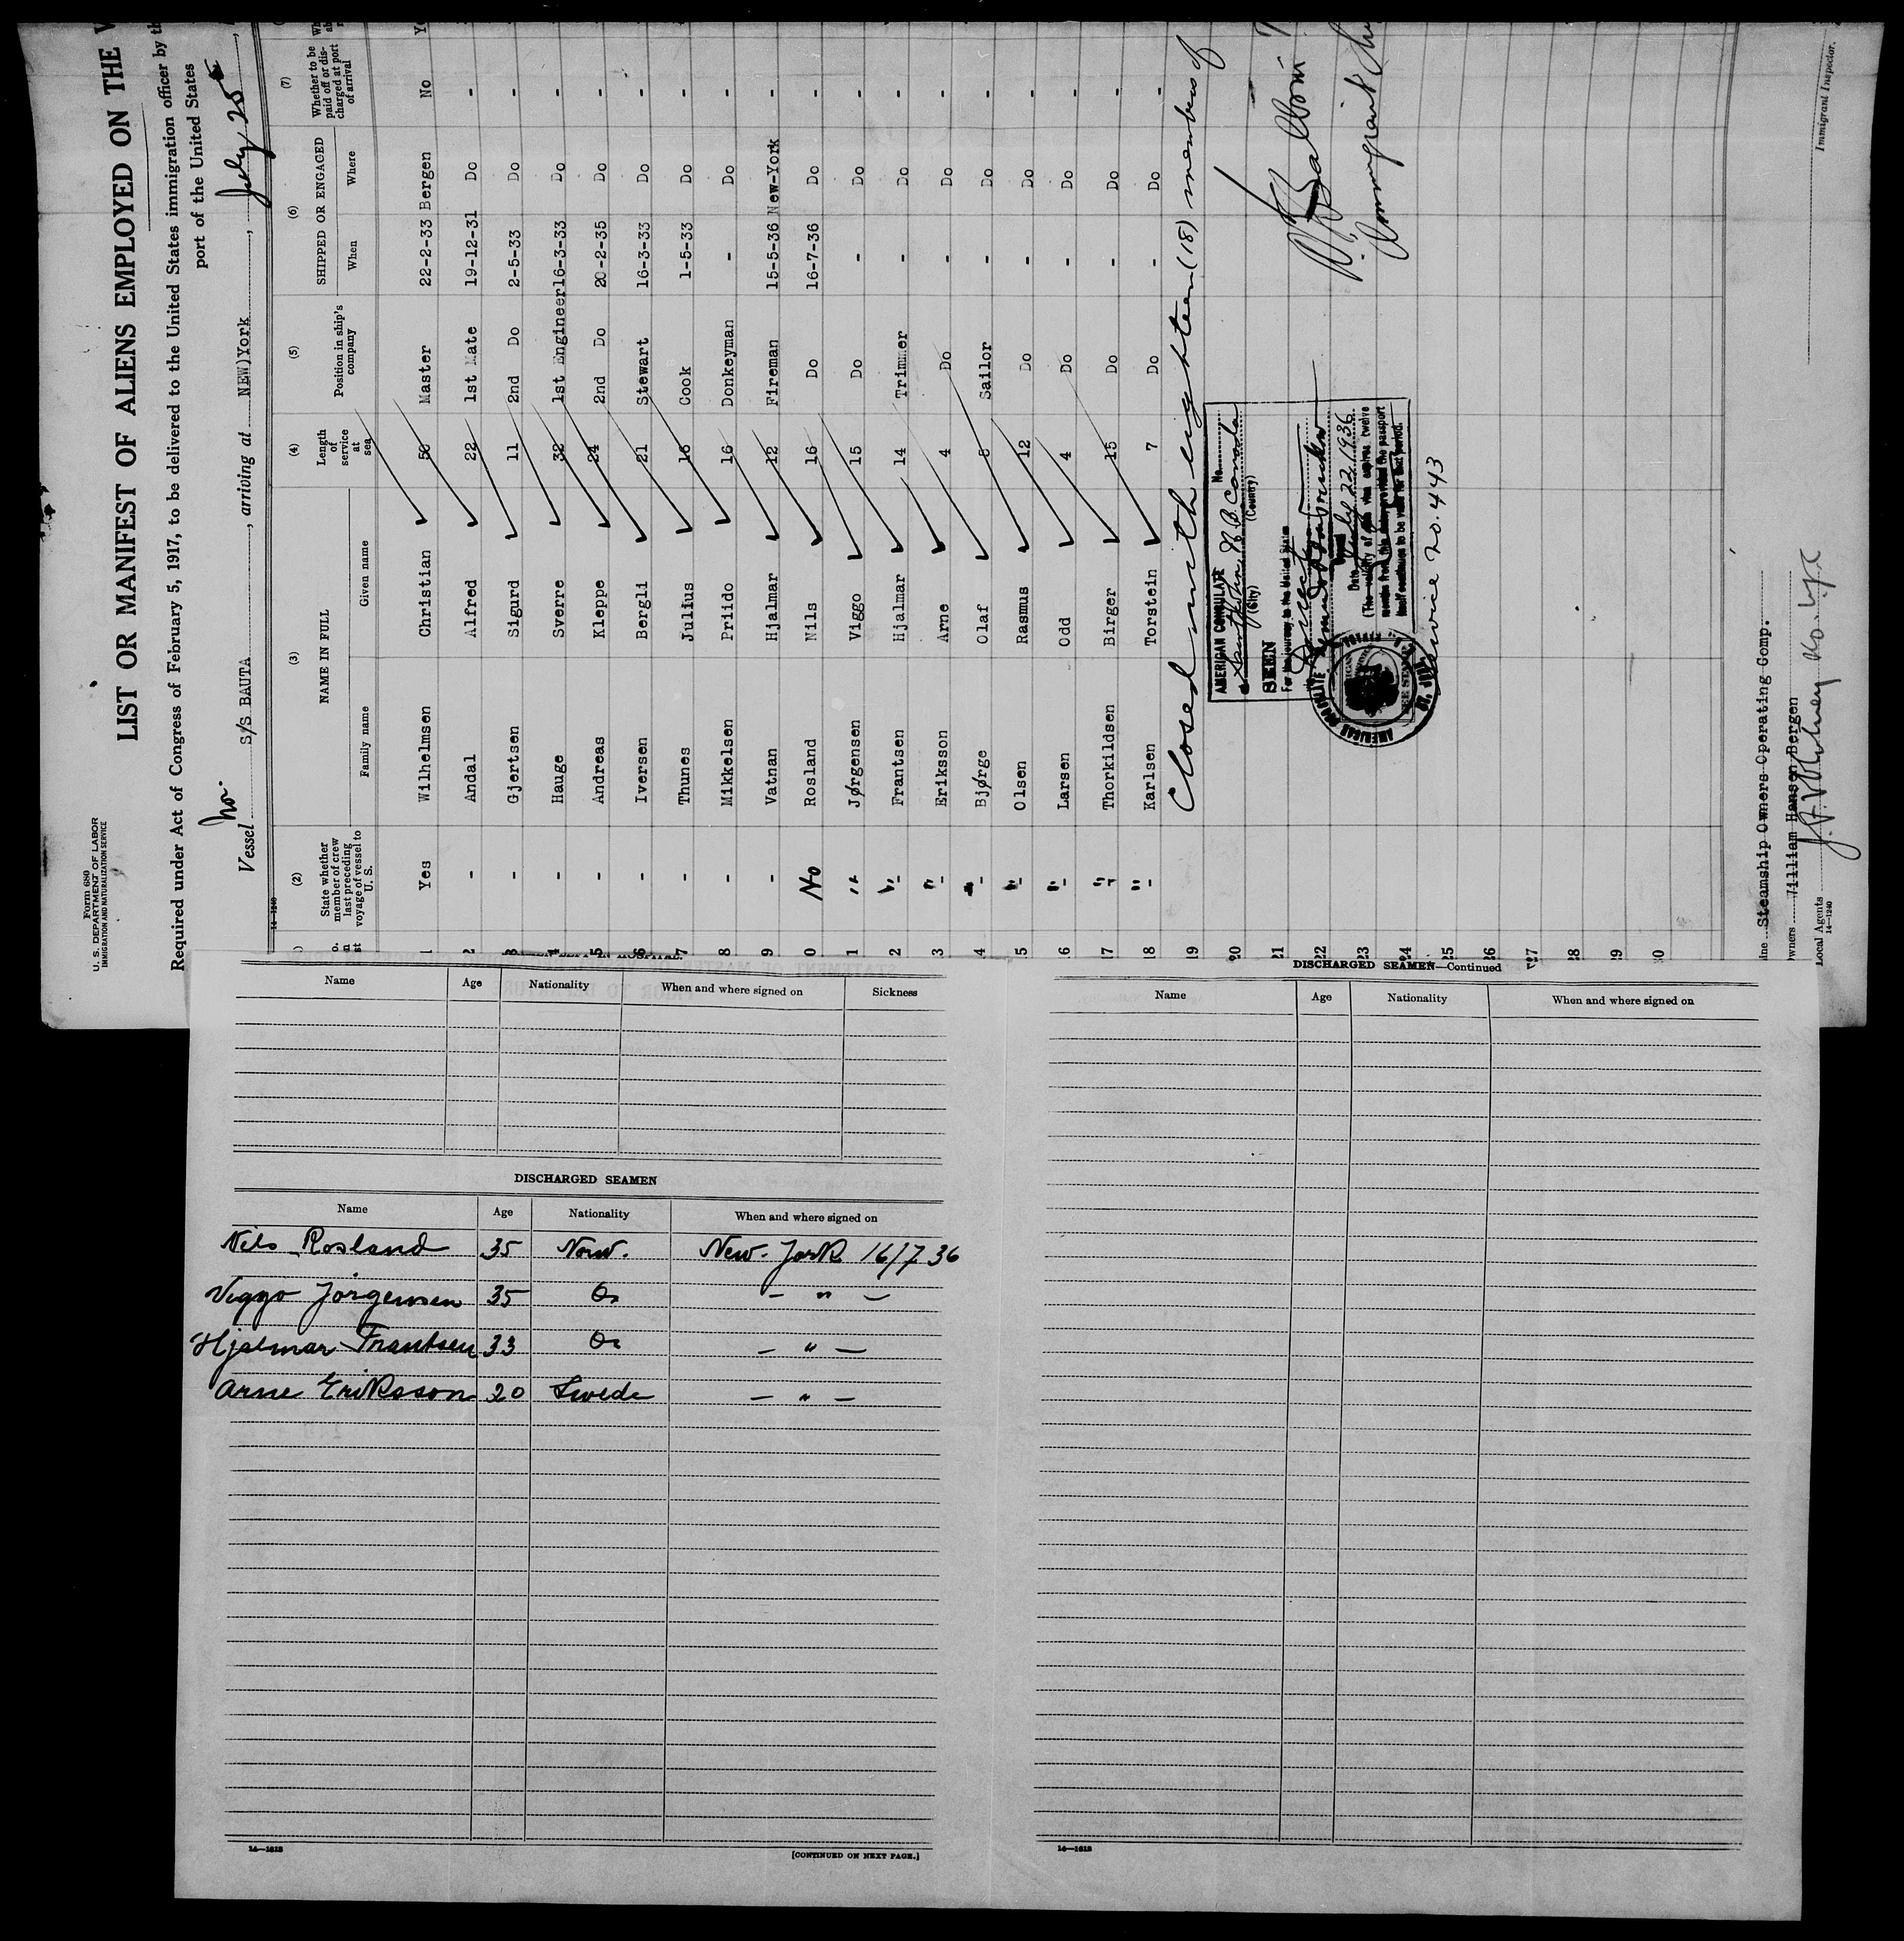 Form 680
U. S. DEPARTMENT OF LABOR
IMMIGRATION AND NATURALIZATION SERVICE
LIST OR MANIFEST OF ALIENS EMPLOYED ON THE
Required under Act of Congress of February 5, 1917, to be delivered to the United States immigration officer by th
port of the United States
No.
Vessel S/S BAUTA, arriving at NEW)York, July 25
14—1240
(2) (3) (4) (5) (6) (7)
State whether member of crew last preceding voyage of vessel to U. S.
NAME IN FULL
Family name Given name
Length of service at sea
Position in ship's company
SHIPPED OR ENGAGED
When Where
Whether to be paid off or discharged at port of arrival
1 Yes Wilhelmsen Christian 50 Master 22-2-33 Bergen No
2 - Andal Alfred 22 1st Mate 19-12-31 Do -
3 - Gjertsen Sigurd 11 2nd Do 2-5-33 Do -
4 - Hauge Sverre 32 1st Engineer 16-3-33 Do -
5 - Andreas Kleppe 24 2nd Do 20-2-35 Do -
6 - Iversen Bergli 21 Stewart 16-3-33 Do -
7 - Thunes Julius 16 Cook 1-5-33 Do -
8 - Mikkelsen Priido 16 Donkeyman - Do -
9 - Vatnan Hjalmar 12 Fireman 15-5-36 New-York -
0 No Rosland Nils 16 Do 16-7-36 Do -
1 " Jørgensen Viggo 15 Do - Do -
2 " Frantsen Hjalmar 14 Trimmer - Do -
3 " Eriksson Arne 4 Do - Do -
4 - Bjørge Olaf 8 Sailor - Do -
5 " Olsen Rasmus 12 Do - Do -
6 " Larsen Odd 4 Do - Do -
17 " Thorkildsen Birger 15 Do - Do -
18 " Karlsen Torstein 7 Do - Do -
19 Closed with eighteen (18) members of
20
21
22
23
24
25
26
27
28
29
30
AMERICAN CONSULATE No.
Saint John, N.B. Canada
(City) (County)
SEEN
For the journey to the United States
Date July 22 1936
(The validity of this visa expires twelve
months from this date provided the passport
itself continues to be valid for that period.
Service No. 443
Steamship Owners Operating Comp.
wners William Hansen Bergen
Local Agents
14—1240
Immigrant Inspector.
Name Age Nationality When and where signed on Sickness
DISCHARGED SEAMEN
Name Age Nationality When and where signed on
Nils Rosland 35 Norw. New-York 16/7 36
Viggo Jörgensen 35 Do — " —
Hjalmar Frantsen 33 Do — " —
Arne Eriksson 20 Swede — " —
14—1618
[CONTINUED ON NEXT PAGE.]
DISCHARGED SEAMEN—Continued
Name Age Nationality When and where signed on
14—1618